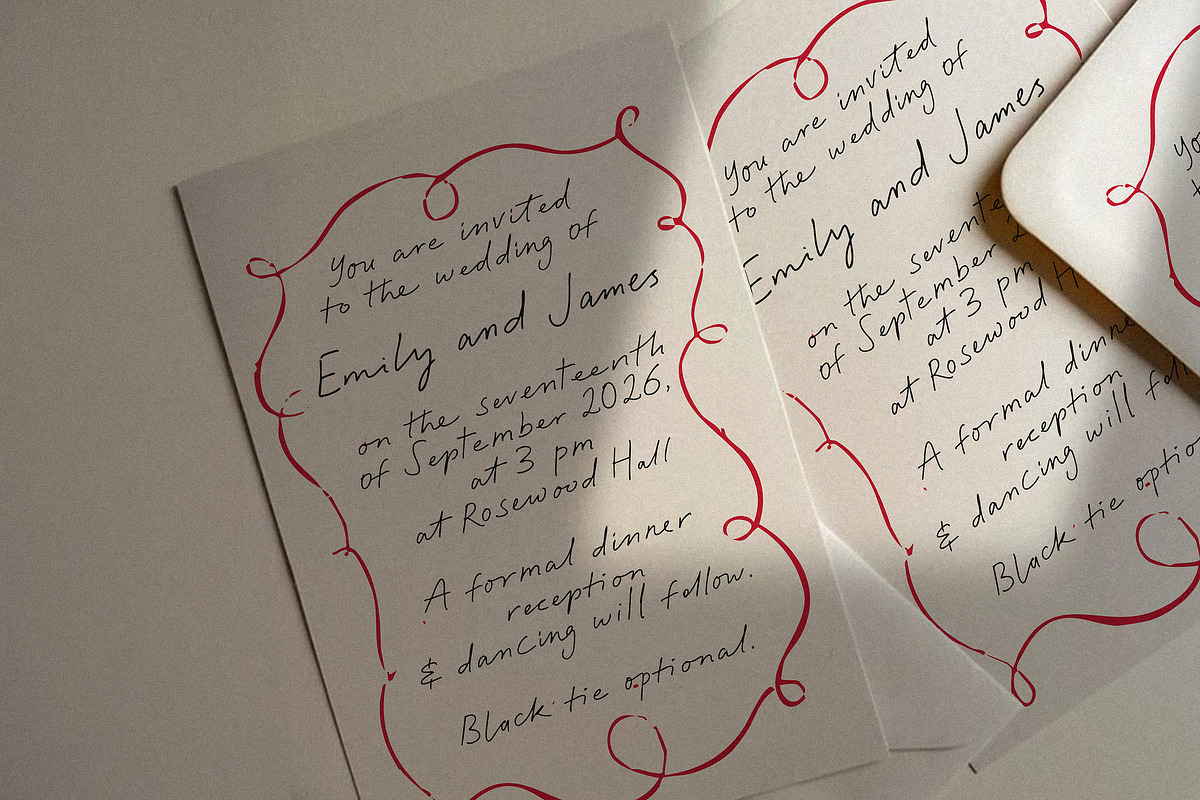 You are invited
to the wedding of
Emily and James
on the seventeenth
of September 2026,
at 3 pm
at Rosewood Hall
A formal dinner
reception
& dancing will follow.
Black tie optional.
You are invited
to the wedding of
Emily and James
on the
of September
at 3 pm
at Rosewood
A formal
reception
& dancing will
Black tie